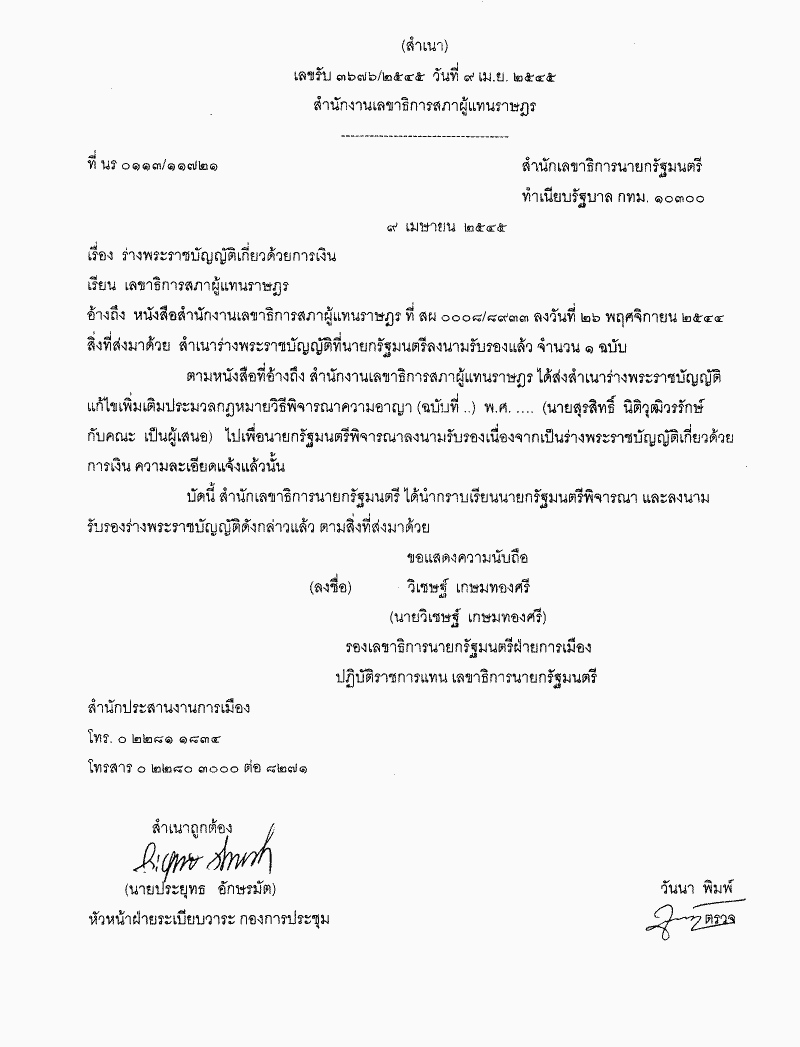 (สำเนา)
เลขรับ ๓๖๗๖/๒๕๔๕ วันที่ ๙ เม.ย. ๒๕๔๕
สำนักงานเลขาธิการสภาผู้แทนราษฎร
-----------------------------------
ที่ นร ๐๑๑๓/๑๑๗๒๑ สำนักเลขาธิการนายกรัฐมนตรี
ทำเนียบรัฐบาล กทม. ๑๐๓๐๐
๙ เมษายน ๒๕๔๕
เรื่อง ร่างพระราชบัญญัติเกี่ยวด้วยการเงิน
เรียน เลขาธิการสภาผู้แทนราษฎร
อ้างถึง หนังสือสำนักงานเลขาธิการสภาผู้แทนราษฎร ที่ สผ ๐๐๐๘/๘๙๓๓ ลงวันที่ ๒๖ พฤศจิกายน ๒๕๔๔
สิ่งที่ส่งมาด้วย สำเนาร่างพระราชบัญญัติที่นายกรัฐมนตรีลงนามรับรองแล้ว จำนวน ๑ ฉบับ
ตามหนังสือที่อ้างถึง สำนักงานเลขาธิการสภาผู้แทนราษฎร ได้ส่งสำเนาร่างพระราชบัญญัติ
แก้ไขเพิ่มเติมประมวลกฎหมายวิธีพิจารณาความอาญา (ฉบับที่ ..) พ.ศ. .... (นายสุรสิทธิ์ นิติวุฒิวรรักษ์
กับคณะ เป็นผู้เสนอ) ไปเพื่อนายกรัฐมนตรีพิจารณาลงนามรับรองเนื่องจากเป็นร่างพระราชบัญญัติเกี่ยวด้วย
การเงิน ความละเอียดแจ้งแล้วนั้น
บัดนี้ สำนักเลขาธิการนายกรัฐมนตรี ได้นำกราบเรียนนายกรัฐมนตรีพิจารณา และลงนาม
รับรองร่างพระราชบัญญัติดังกล่าวแล้ว ตามสิ่งที่ส่งมาด้วย
ขอแสดงความนับถือ
(ลงชื่อ) วิเชษฐ์ เกษมทองศรี
(นายวิเชษฐ์ เกษมทองศรี)
รองเลขาธิการนายกรัฐมนตรีฝ่ายการเมือง
ปฏิบัติราชการแทน เลขาธิการนายกรัฐมนตรี
สำนักประสานงานการเมือง
โทร. ๐ ๒๒๘๑ ๑๘๓๔
โทรสาร ๐ ๒๒๘๐ ๓๐๐๐ ต่อ ๘๒๗๑
สำเนาถูกต้อง
(นายประยุทธ อักษรมัต)
วันนา พิมพ์
หัวหน้าฝ่ายระเบียบวาระ กองการประชุม
ตรวจ